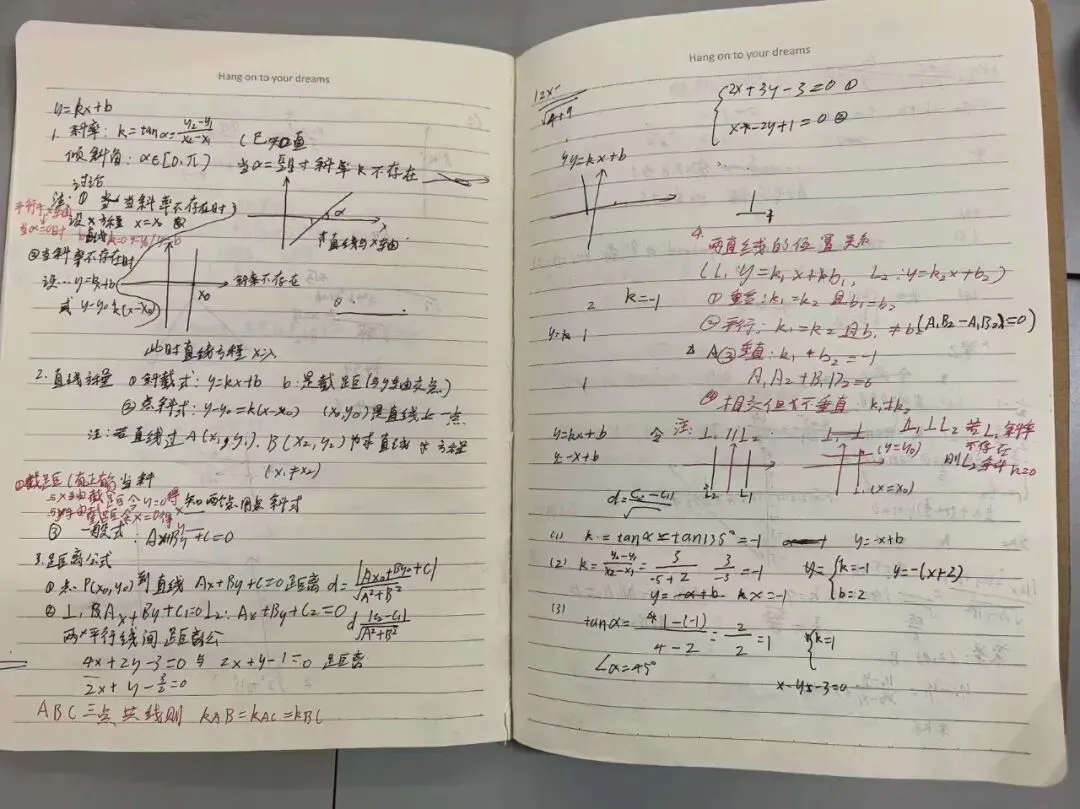 Hang on to your dreams
y=kx+b
1. 斜率: k=tanα=\frac{y₂-y₁}{x₂-x₁}
倾斜角: α∈[0,π) 当α= 时斜率k不存在
讨论
注: ① 当斜率不存在时
设 方程 x=x₀
α
②当斜率不存在时
设 y=kx+b
或 y-y₀=k(x-x₀)
x₀
斜率不存在
此时直线方程 x=x₀
2. 直线方程 ①斜截式: y=kx+b b:是截距(与y轴交点)
②点斜式: y-y₀=k(x-x₀) (x₀,y₀)是直线上一点
注: 若直线过A(x₁,y₁). B(x₂,y₂) 求直线 方程
(x₁≠x₂)
截距(有正负)
与x轴截距令y=0得
与y轴截距令x=0得
知两点用点斜式
③ 一般式: Ax+By+C=0
3.距离公式
①点P(x₀,y₀)到直线 Ax+By+C=0距离 d=\frac{|Ax₀+By₀+C|}{√A²+B²}
② L₁ Ax+By+C₁=0 L₂: Ax+By+C₂=0 d\frac{|C₂-C₁|}{√A²+B²}
两平行线间距离公
4x+2y-3=0 与 2x+y-1=0 距离
2x+y-\frac{3}{2}=0
ABC三点共线则 kAB=kAC=kBC
Hang on to your dreams
2x+3y-3=0 ①
x-2y+1=0 ②
y=kx+b
4. 两直线的位置关系
(L₁ y=k₁x+b₁, L₂: y=k₂x+b₂)
2 k=-1
① 重合: k₁=k₂ 且b₁=b₂
②平行: k₁=k₂ 且b₁≠b₂ (A₁B₂-A₂B₁=0)
1
③垂直: k₁+b₂=-1
A₁A₂+B₁B₂=0
1
④相交但不垂直: k₁≠k₂
y=kx+b
y=-x+b
注: L₁∥L₂
L₁⊥L₂ 若L₁斜率
不存在
则L₂斜率k=0
(y=y₀)
L₂ L₁
L₁ (x=x₀)
d=\frac{C₂-C₁}{√}
(1) k=tanα=tan135°=-1 y=-x+b
(2) k=\frac{y₂-y₁}{x₂-x₁}=\frac{3}{-5+2} \frac{3}{-3}=-1 k=-1 y=-(x+2)
b=2
(3)
tanα=\frac{1-(-1)}{4-2}=\frac{2}{2}=1 k=1
∠α=45°
x-y-3=0